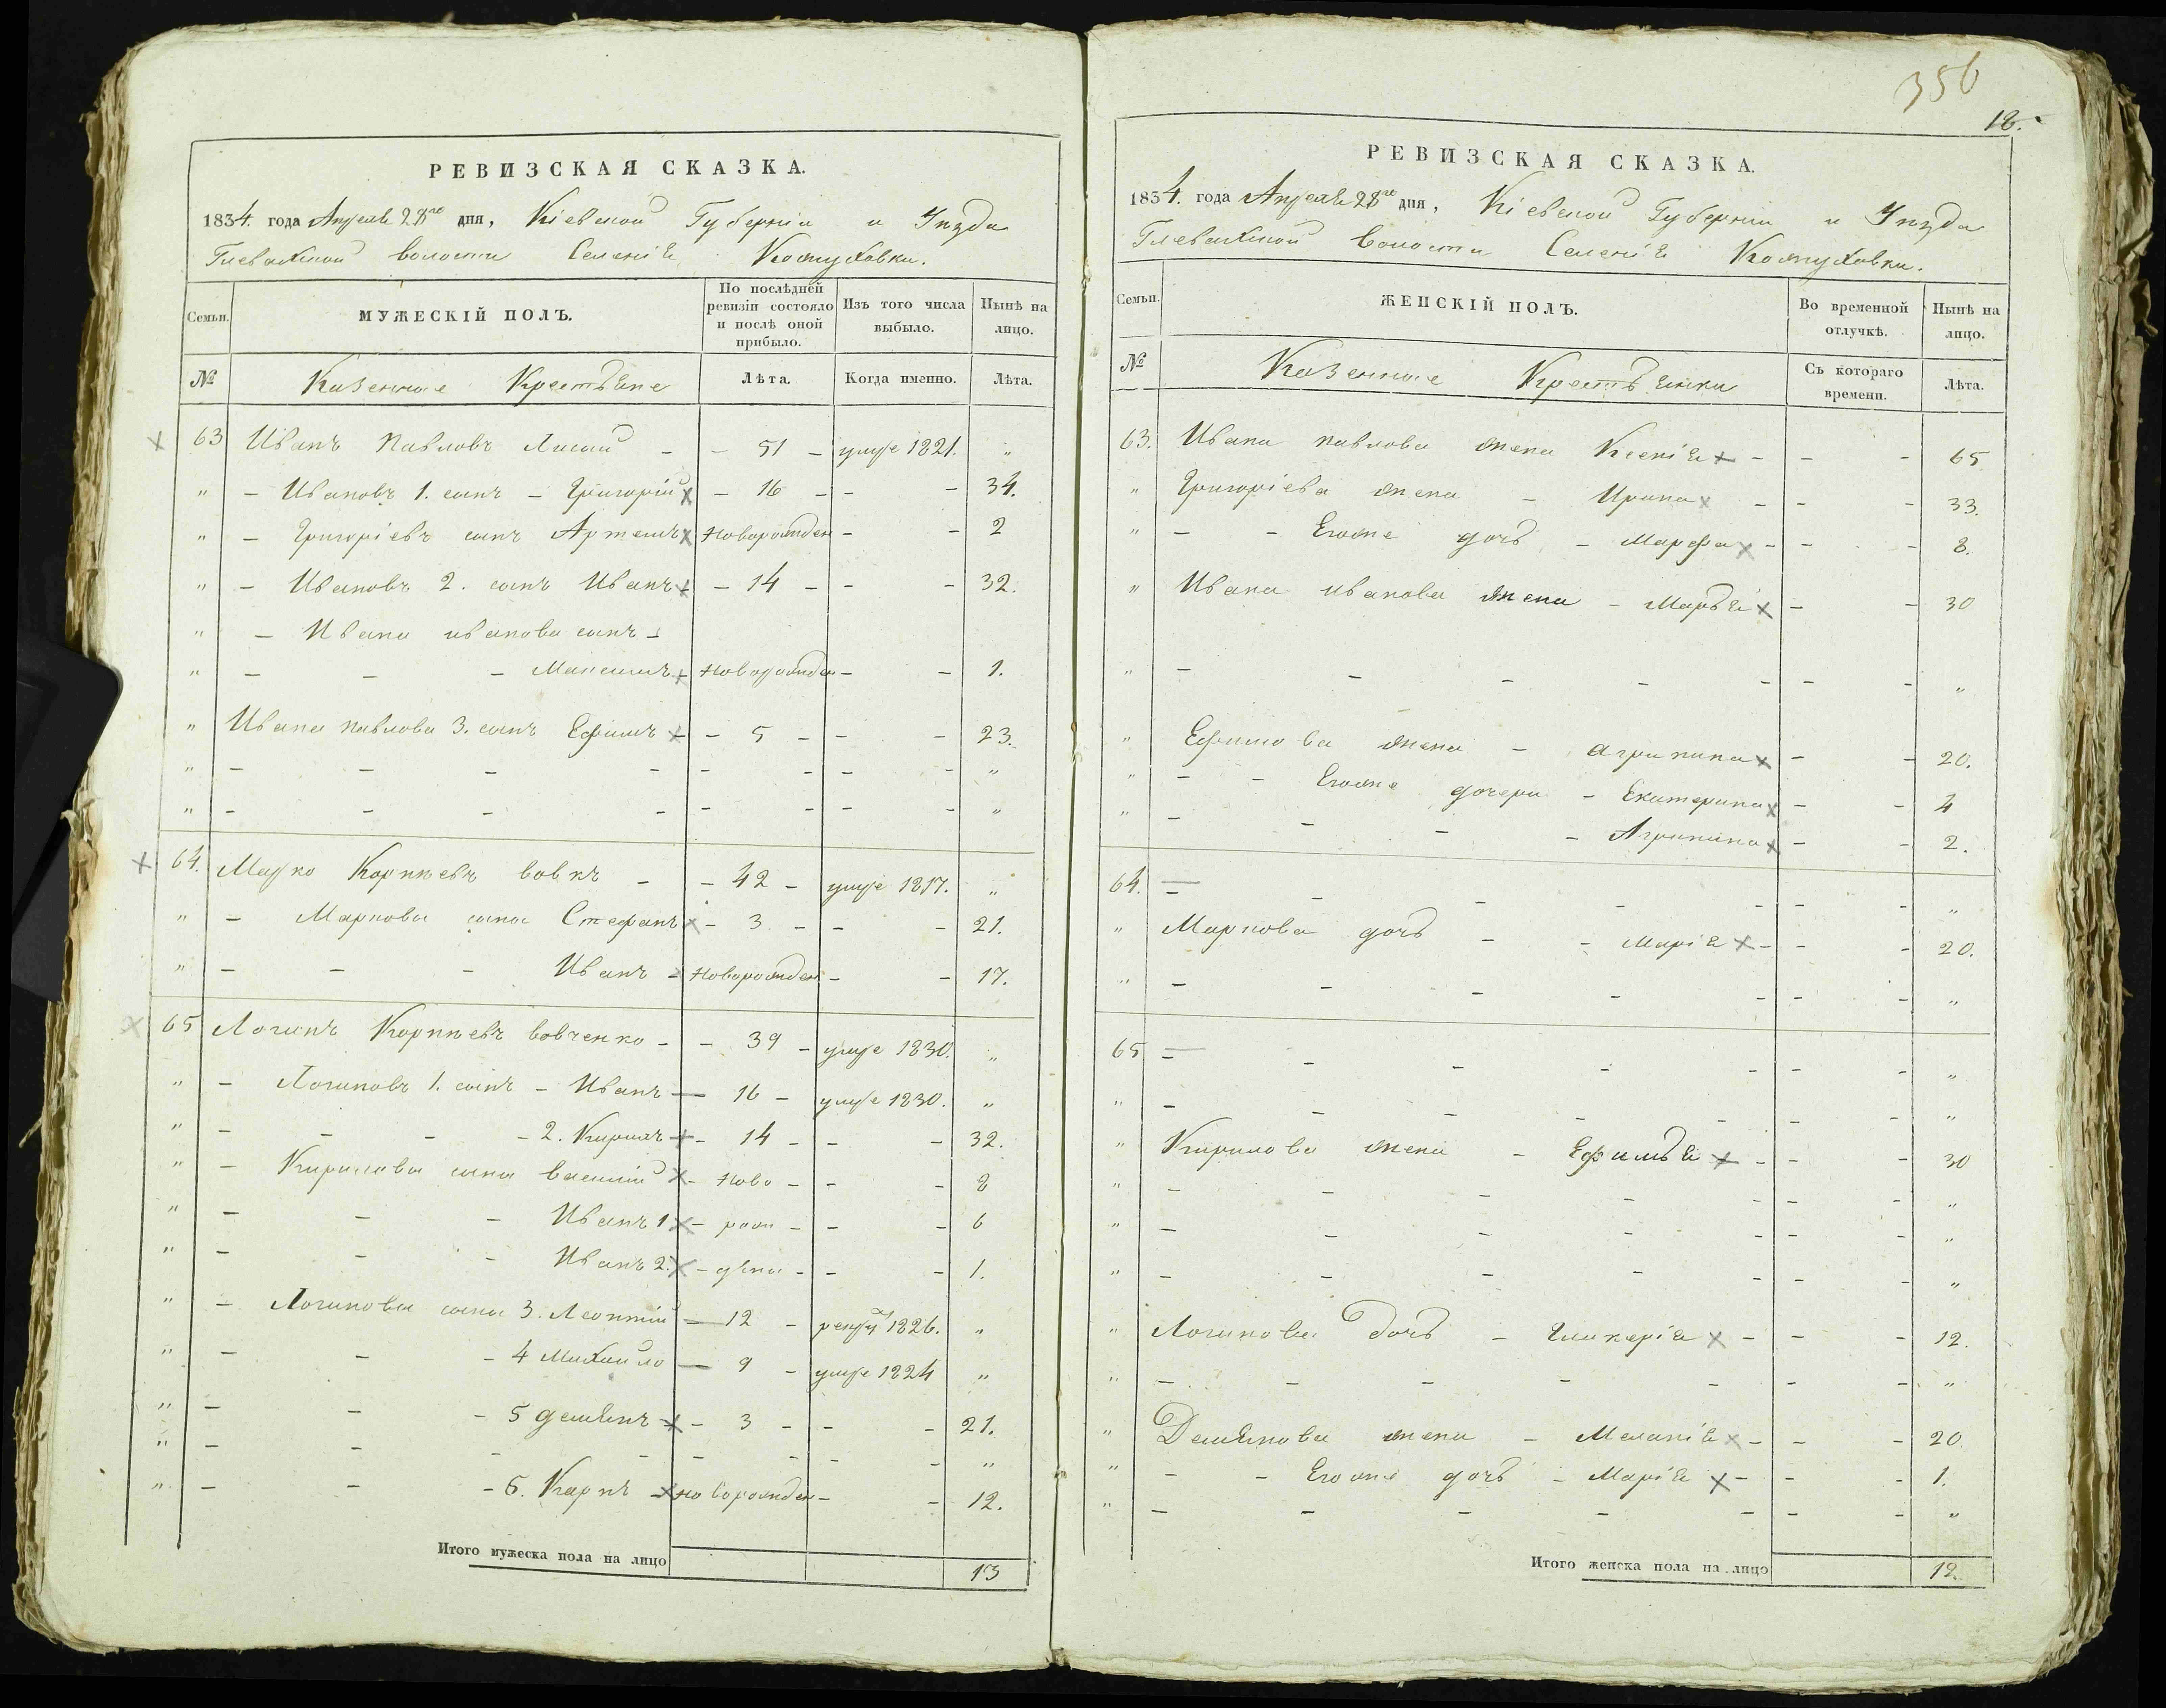 РЕВИЗСКАЯ СКАЗКА.
1834. года Апреля 28го дня, Кіевской Губерніи и Уѣзда
Глевахской волости Селенія Кожуховки.
Семьи.
МУЖЕСКІЙ ПОЛЪ.
По послѣдней ревизіи состояло и послѣ оной прибыло.
Изъ того числа выбыло.
Нынѣ на лицо.
№ Казенные Крестьяне Лѣта. Когда именно. Лѣта.
63 Иванъ Павловъ Лисай - - 51 - умре 1821. "
" - Ивановъ 1. сынъ - Григорій - 16 - - - 34.
" - Григоріевъ сынъ Артемъ Новорожден - - 2
" - Ивановъ 2. сынъ Иванъ - 14 - - - 32.
" - Ивана иванова сынъ -
" - - - Максимъ Новорожден - - 1.
" Ивана павлова 3. сынъ Ефимъ - - 5 - - - 23.
" - - - - - - - - "
" - - - - - - - - "
64. Марко Корнѣевъ вовкъ - - 42 - умре 1817. "
" - Маркова сына Стефанъ - 3 - - - 21.
" - - - Иванъ - Новорожден - - 17.
65 Логинъ Корнѣевъ вовченко - - 39 - умре 1830. "
" - Логиновъ 1. сынъ - Иванъ - 16 - умре 1830. "
" - - - - 2. Кирилъ - 14 - - - 32.
" - Кирилова сына василій - Ново - - - 8
" - - - Иванъ 1 - рож - - - 6
" - - - Иванъ 2. - дена - - - 1.
" - Логинова сына 3. Леонтій - 12 - рекру 1826. "
" - - - 4 Михайло - 9 - умре 1824 "
" - - - 5 демьянъ - 3 - - - 21.
" - - - - - - - - "
" - - - 6. Карпъ - новорожден - - 12.
Итого мужеска пола на лицо 13
356
18.
РЕВИЗСКАЯ СКАЗКА.
1834. года Апреля 28го дня, Кіевской Губерніи и Уѣзда
Глевахской волости Селенія Кожуховки.
Семьи.
ЖЕНСКІЙ ПОЛЪ.
Во временной отлучкѣ.
Нынѣ на лицо.
№ Казенные Крестьянки Съ котораго времени. Лѣта.
63. Ивана павлова жена Ксенія - - - 65
" Григоріева жена - Ирина - - - 33.
" - - Егоже дочь - Марфа - - - 8.
" Ивана иванова жена - Марья - - 30
" - - - - - - - "
" Ефимова жена - агрипина - - 20.
" - - Егоже дочери - Екатерина - - 4
" - - - - Агрипина - - 2.
64. - - - - - - - "
" Маркова дочь - - Марія - - - 20.
" - - - - - - - "
65 - - - - - - - "
" - - - - - - - "
" Кирилова жена - Ефимья - - - 30
" - - - - - - - "
" - - - - - - - "
" - - - - - - - "
" Логинова дочь - Гликерія - - - 12.
" - - - - - - - "
" Демьянова жена - Меланія - - - 20
" - - Егоже дочь - Марія - - - 1.
" - - - - - - - "
Итого женска пола на лицо 12.